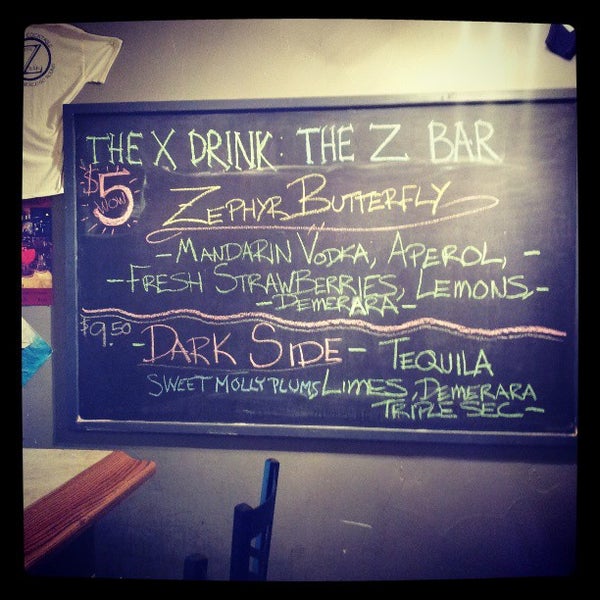 Z
THE X DRINK: THE Z BAR
$5
WOW
ZEPHYR BUTTERFLY
- MANDARIN VODKA, APEROL, -
- FRESH STRAWBERRIES, LEMONS, -
- DEMERARA -
$9.50
- DARK SIDE - TEQUILA
SWEET MOLLY PLUMS LIMES, DEMERARA
TRIPLE SEC -